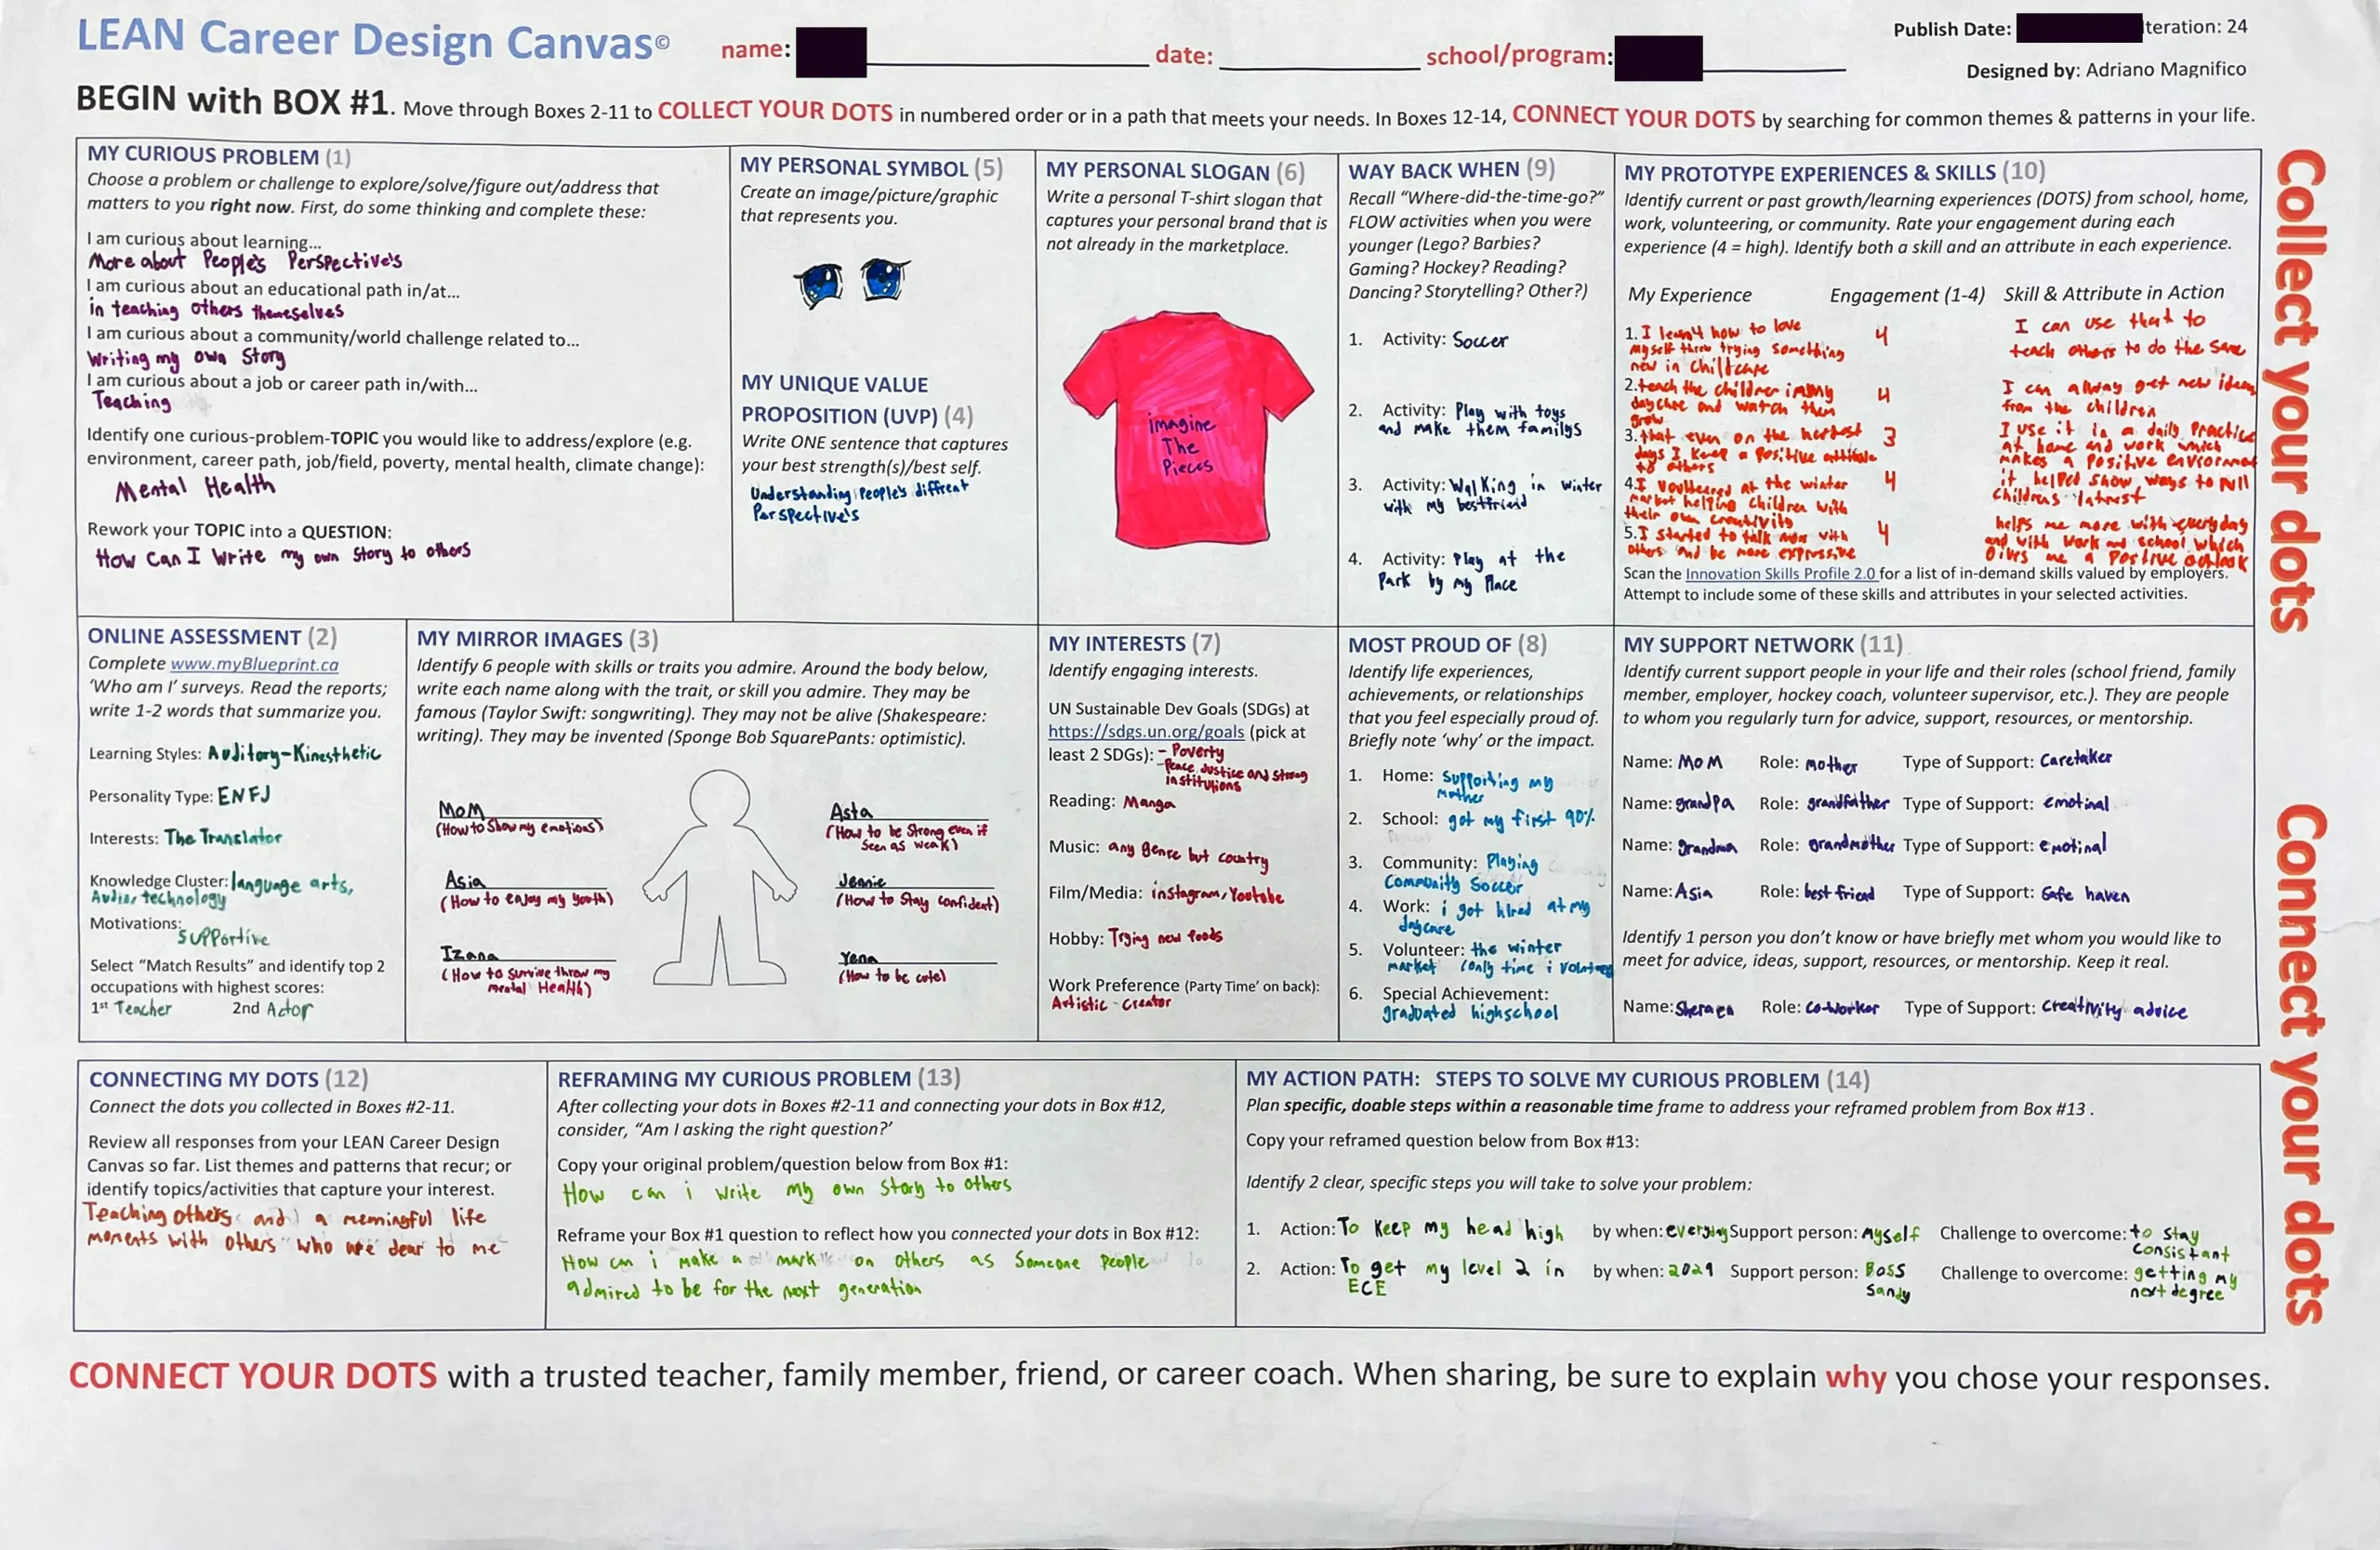 LEAN Career Design Canvas©
name:
date:
school/program:
Publish Date:
Iteration: 24
Designed by: Adriano Magnifico
BEGIN with BOX #1. Move through Boxes 2-11 to COLLECT YOUR DOTS in numbered order or in a path that meets your needs. In Boxes 12-14, CONNECT YOUR DOTS by searching for common themes & patterns in your life.
MY CURIOUS PROBLEM (1)
Choose a problem or challenge to explore/solve/figure out/address that
matters to you right now. First, do some thinking and complete these:
I am curious about learning...
More about People's Perspective's
I am curious about an educational path in/at...
in teaching others themeselves
I am curious about a community/world challenge related to...
Writing my own Story
I am curious about a job or career path in/with...
Teaching
Identify one curious-problem-TOPIC you would like to address/explore (e.g.
environment, career path, job/field, poverty, mental health, climate change):
Mental Health
Rework your TOPIC into a QUESTION:
How Can I Write my own Story to others
MY PERSONAL SYMBOL (5)
Create an image/picture/graphic
that represents you.
MY UNIQUE VALUE
PROPOSITION (UVP) (4)
Write ONE sentence that captures
your best strength(s)/best self.
Understanding People's diffreat
Perspective's
MY PERSONAL SLOGAN (6)
Write a personal T-shirt slogan that
captures your personal brand that is
not already in the marketplace.
imagine
The
Pieces
WAY BACK WHEN (9)
Recall "Where-did-the-time-go?"
FLOW activities when you were
younger (Lego? Barbies?
Gaming? Hockey? Reading?
Dancing? Storytelling? Other?)
1. Activity: Soccer
2. Activity: Play with toys
and make them familys
3. Activity: Walking in winter
with my bestfriend
4. Activity: Play at the
Park by my Place
MY PROTOTYPE EXPERIENCES & SKILLS (10)
Identify current or past growth/learning experiences (DOTS) from school, home,
work, volunteering, or community. Rate your engagement during each
experience (4 = high). Identify both a skill and an attribute in each experience.
My Experience Engagement (1-4) Skill & Attribute in Action
1. I learn't how to love
myself threw trying something
new in childcare
4
I can use that to
teach others to do the same
2. teach the children in my
daycare and watch them
grow
4
I can alway get new ideas
from the children
3. that even on the hardest
days I keep a Positive attitude
to others
3
I use it in a daily Practice
at home and work which
makes a Positive enviorment
4. I voulteered at the winter
market helping children with
their own creativity
4
it helped show ways to pull
childrens intrest
5. I started to talk more with
others and be more expressive
4
helps me more with everyday
and with work and school which
gives me a Positive outlook
Scan the Innovation Skills Profile 2.0 for a list of in-demand skills valued by employers.
Attempt to include some of these skills and attributes in your selected activities.
ONLINE ASSESSMENT (2)
Complete www.myBlueprint.ca
'Who am I' surveys. Read the reports;
write 1-2 words that summarize you.
Learning Styles: Auditory-Kinesthetic
Personality Type: ENFJ
Interests: The Translator
Knowledge Cluster: language arts,
technology
Motivations:
Supportive
Select "Match Results" and identify top 2
occupations with highest scores:
1st Teacher 2nd Actor
MY MIRROR IMAGES (3)
Identify 6 people with skills or traits you admire. Around the body below,
write each name along with the trait, or skill you admire. They may be
famous (Taylor Swift: songwriting). They may not be alive (Shakespeare:
writing). They may be invented (Sponge Bob SquarePants: optimistic).
MoM
(How to Show my emotions)
Asia
(How to enjoy my youth)
Izana
(How to survive threw my
mental Health)
Asta
(How to be Strong even if
Seen as weak)
Jennie
(How to Stay confident)
Yena
(How to be cute)
MY INTERESTS (7)
Identify engaging interests.
UN Sustainable Dev Goals (SDGs) at
https://sdgs.un.org/goals (pick at
least 2 SDGs): - Poverty
-Peace Justice and strong
institutions
Reading: Manga
Music: any genre but country
Film/Media: instagram, Youtube
Hobby: Trying new foods
Work Preference (Party Time' on back):
Artistic - Creator
MOST PROUD OF (8)
Identify life experiences,
achievements, or relationships
that you feel especially proud of.
Briefly note 'why' or the impact.
1. Home: Supporting my
mother
2. School: got my first 90%
3. Community: Playing
Community Soccer
4. Work: i got hired at my
daycare
5. Volunteer: the winter
market (only time i
6. Special Achievement:
graduated highschool
MY SUPPORT NETWORK (11)
Identify current support people in your life and their roles (school friend, family
member, employer, hockey coach, volunteer supervisor, etc.). They are people
to whom you regularly turn for advice, support, resources, or mentorship.
Name: MoM Role: mother Type of Support: Caretaker
Name: grandpa Role: grandfather Type of Support: emotinal
Name: grandma Role: grandmother Type of Support: emotinal
Name: Asia Role: best friend Type of Support: Safe haven
Identify 1 person you don't know or have briefly met whom you would like to
meet for advice, ideas, support, resources, or mentorship. Keep it real.
Name: Role: Co-worker Type of Support: Creativity advice
CONNECTING MY DOTS (12)
Connect the dots you collected in Boxes #2-11.
Review all responses from your LEAN Career Design
Canvas so far. List themes and patterns that recur; or
identify topics/activities that capture your interest.
Teaching others and a memingful life
moments with others who are dear to me
REFRAMING MY CURIOUS PROBLEM (13)
After collecting your dots in Boxes #2-11 and connecting your dots in Box #12,
consider, "Am I asking the right question?'
Copy your original problem/question below from Box #1:
How can i write my own Story to others
Reframe your Box #1 question to reflect how you connected your dots in Box #12:
How can i make a mark on others as Someone People
admired to be for the next generation
MY ACTION PATH: STEPS TO SOLVE MY CURIOUS PROBLEM (14)
Plan specific, doable steps within a reasonable time frame to address your reframed problem from Box #13 .
Copy your reframed question below from Box #13:
Identify 2 clear, specific steps you will take to solve your problem:
1. Action: To Keep my head high by when: everyday Support person: Myself Challenge to overcome: to stay
consistant
2. Action: To get my level 2 in
ECE
by when: Support person: Boss
Sandy
Challenge to overcome: getting my
next degree
Collect your dots
Connect your dots
CONNECT YOUR DOTS with a trusted teacher, family member, friend, or career coach. When sharing, be sure to explain why you chose your responses.